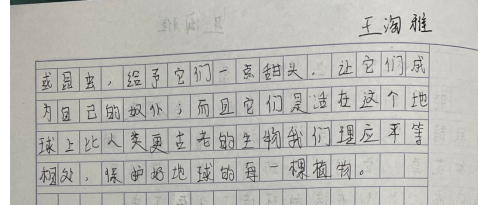 王淘雅
或昆虫，给予它们一点甜头，让它们成
为自己的奴仆；而且它们是活在这个地
球上比人类更古老的生物我们理应平等
相处，保护好地球的每一棵植物。